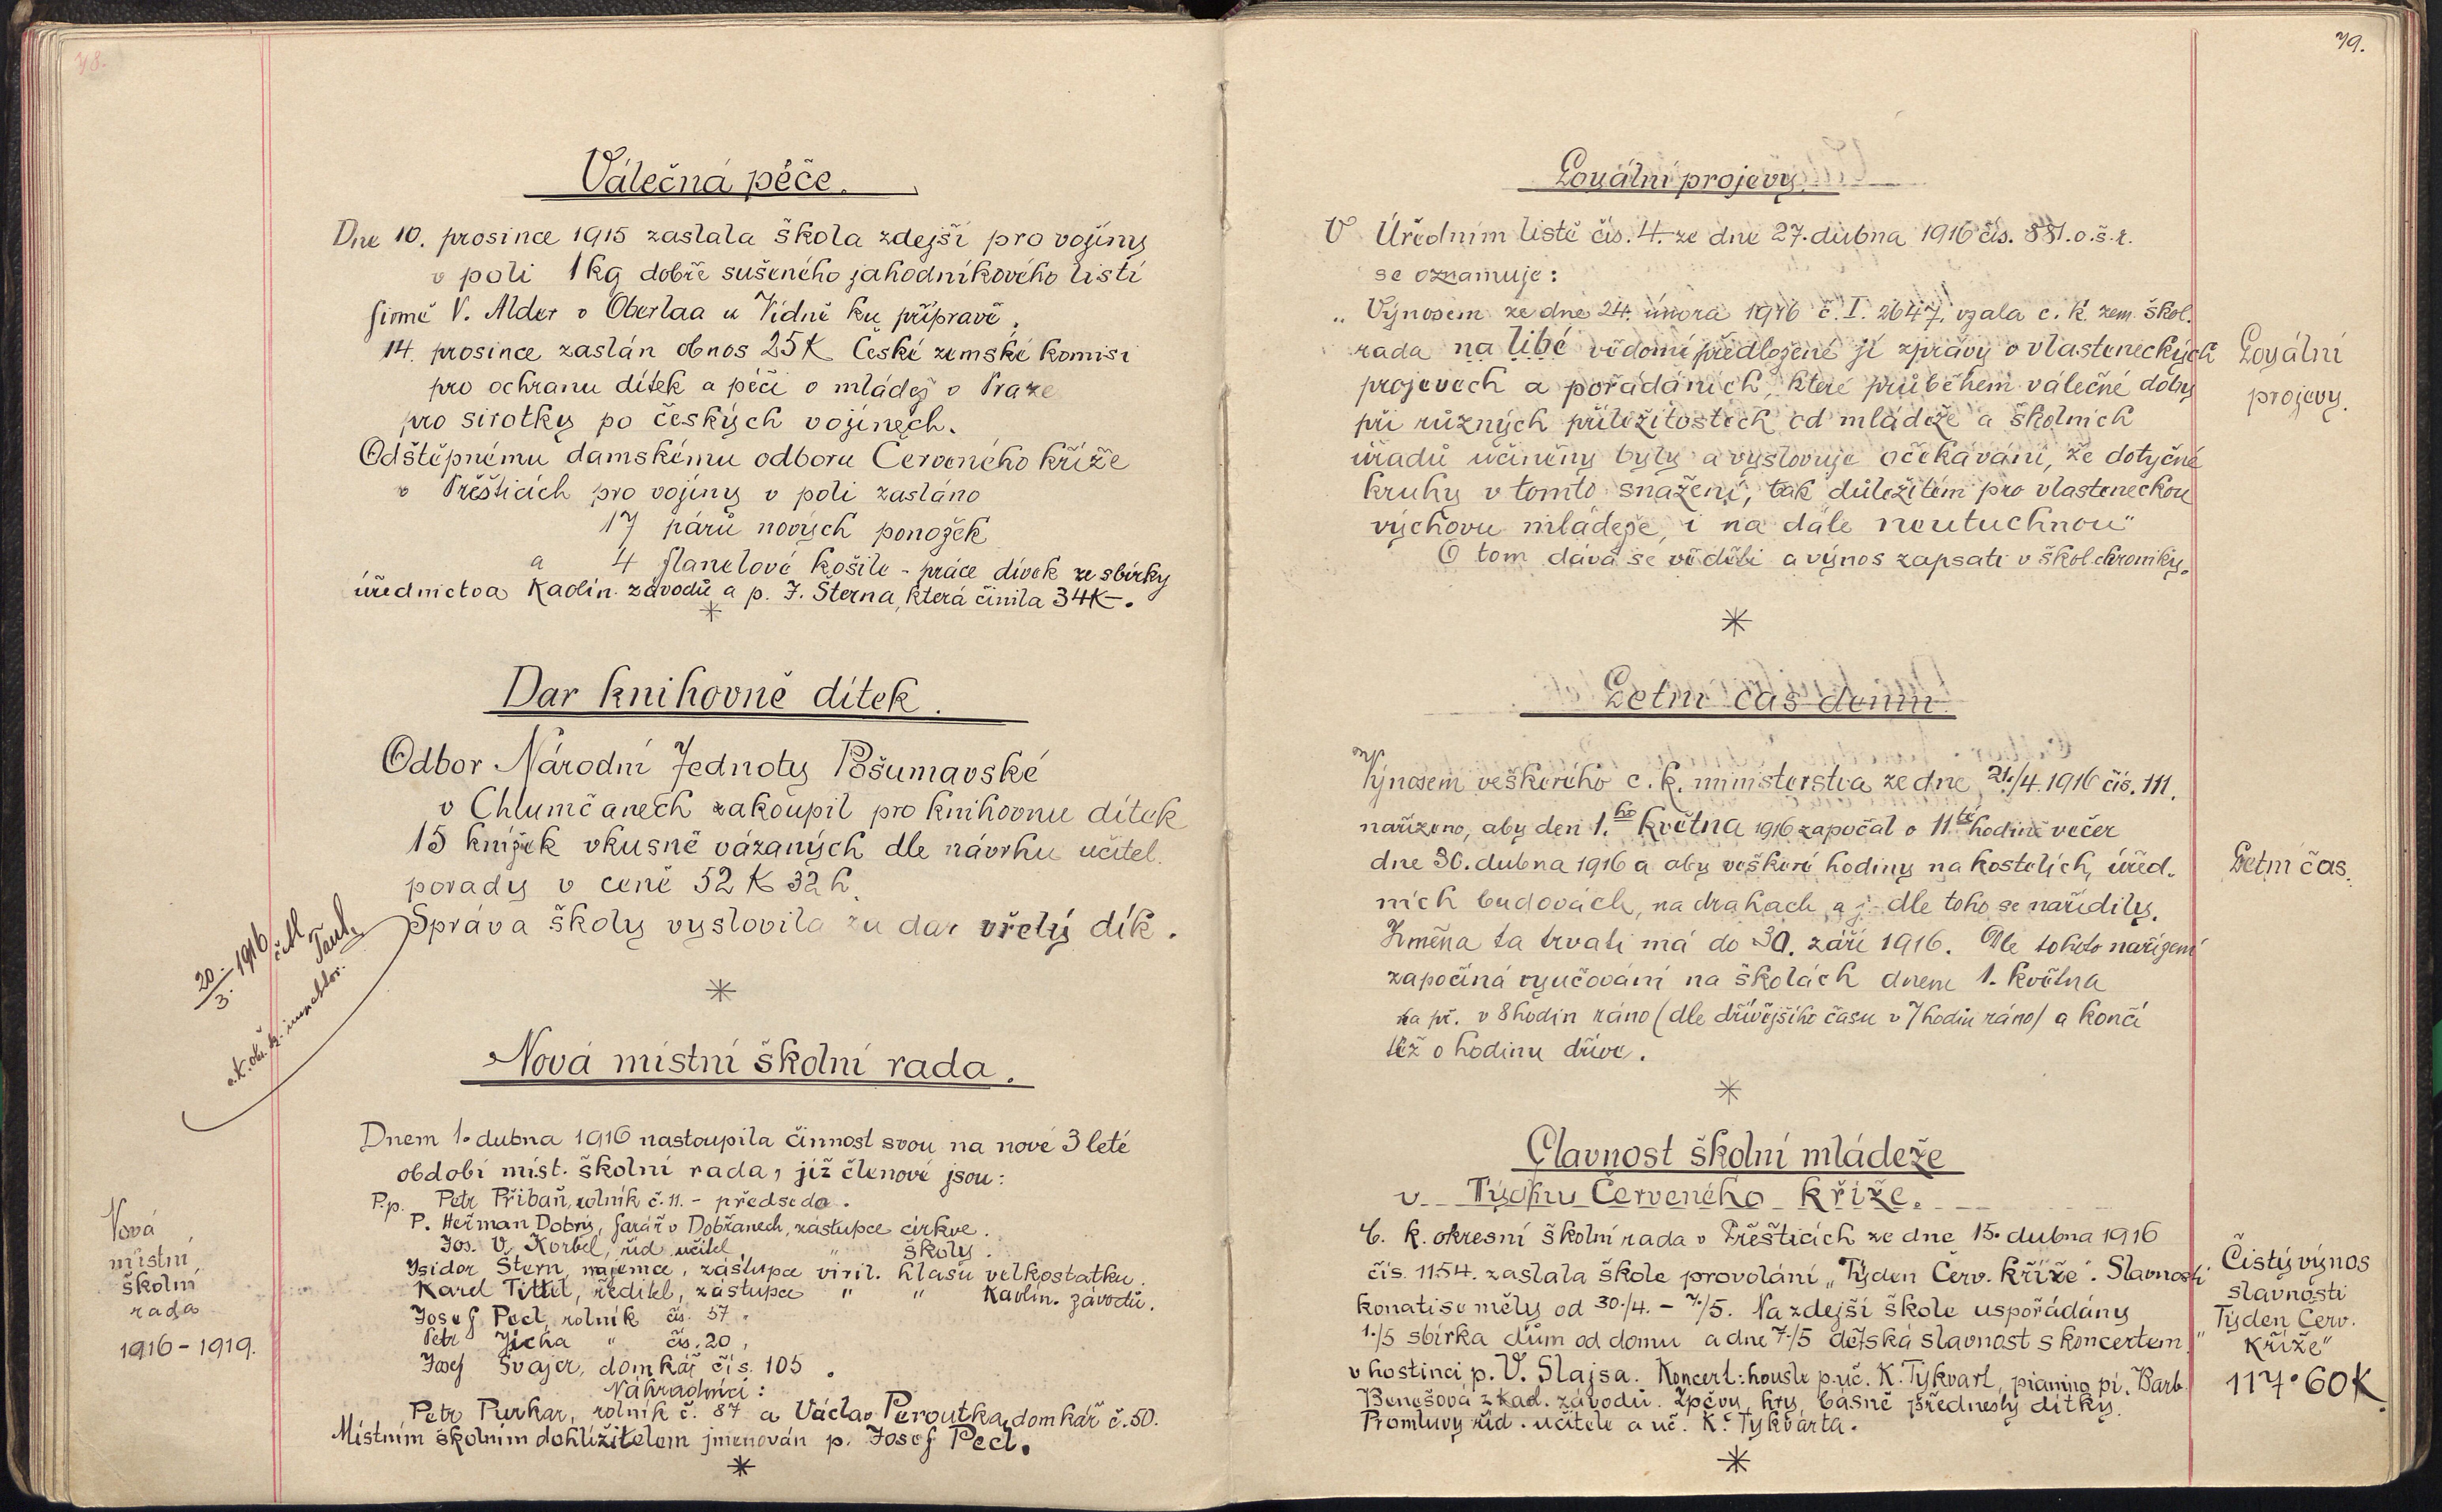 78.
Válečná péče.
Dne 10. prosince 1915 zaslala škola zdejší pro vojíny
v poli 1 kg dobře sušeného jahodníkového listí
firmě V. Alder v Oberlaa u Vídně ku přípravě.
14. prosince zaslán obnos 25 K České zemské komisi
pro ochranu dítek a péči o mládež v Praze
pro sirotky po českých vojínech.
Odštěpnému damskému odboru Červeného kříže
v Přešticích pro vojíny v poli zasláno
17 párů nových ponožek
a 4 flanelové košile - práce dívek ze sbírky
úřednictva Kaolin. závodů a p. J. Šterna, která činila 34K-.
*
Dar knihovně dítek.
Odbor Národní Jednoty Pošumavské
v Chlumčanech zakoupil pro knihovnu dítek
15 knížek vkusně vázaných dle návrhu učitel.
porady v ceně 52 K 32 h.
Správa školy vyslovila za dar vřelý dík.
20/3. 1916 četl
c.k. okr. šk. inspektor.
*
Nová místní školní rada.
Dnem 1. dubna 1916 nastoupila činnost svou na nové 3 leté
období míst. školní rada, již členové jsou:
P.p. Petr Přibáň, rolník č. 11. - předseda.
P. Heřman Dobrý, farář v Dobřanech, zástupce církve.
Jos. V. Korbel, říd. učitel, " školy.
Isidor Štern, nájemce, zástupce viril. hlasu velkostatku.
Karel Tittel, ředitel, zástupce " " Kaolin. závodů.
Josef Pecl, rolník čís. 57.
Petr Jícha " čís. 20,
Josef Švajcr, domkář čís. 105.
Náhradníci:
Petr Purkar, rolník č. 87 a Václav Peroutka, domkář č. 50.
Místním školním dohlížitelem jmenován p. Josef Pecl.
*
Nová
místní
školní
rada
1916-1919.
79.
Loyální projevy.
V Úředním listě čís. 4. ze dne 27. dubna 1916 čís. 881. o.š.r.
se oznamuje:
„Výnosem ze dne 24. února 1916 č. I. 2647. vzala c. k. zem. škol.
rada na libé vědomí předložené jí zprávy o vlasteneckých
projevech a pořádáních, které průběhem válečné doby
při různých příležitostech od mládeže a školních
úřadů učiněny byly a vyslovuje očekávání, že dotyčné
kruhy v tomto snažení, tak důležitém pro vlasteneckou
výchovu mládeže, i na dále neutuchnou"
O tom dává se věděti a výnos zapsati v škol. chroniky.
Loyální
projevy.
*
Letní čas denní.
Výnosem veškerého c. k. ministerstva ze dne 21./4. 1916 čís. 111.
nařízeno, aby den 1.ho května 1916 započal o 11té hodině večer
dne 30. dubna 1916 a aby veškeré hodiny na kostelích, úřed.
ních budovách, na drahach a j. dle toho se nařídily.
Změna ta trvati má do 30. září 1916. Dle tohoto nařízení
započíná vyučování na školách dnem 1. května
na př. v 8 hodin ráno (dle dřívějšího času v 7 hodin ráno) a končí
též o hodinu dříve.
Letní čas.
*
Slavnost školní mládeže
v Týdnu Červeného kříže.
C. k. okresní školní rada v Přešticích ze dne 15. dubna 1916
čís. 1154. zaslala škole provolání „Týden Červ. kříže". Slavnosti
konati se měly od 30./4. - 7./5. Na zdejší škole uspořádány
1./5 sbírka dům od domu a dne 7./5 dětská slavnost s koncertem
v hostinci p. V. Slajsa. Koncert: housle p. uč. K. Tykvart, pianino pí. Barb.
Benešová z kaol. závodů. Zpěvy, hry, básně přednesly dítky.
Promluvy říd. učitele a uč. K. Tykvarta.
*
Čistý výnos
slavnosti
„Týden Červ.
Kříže"
117·60K.